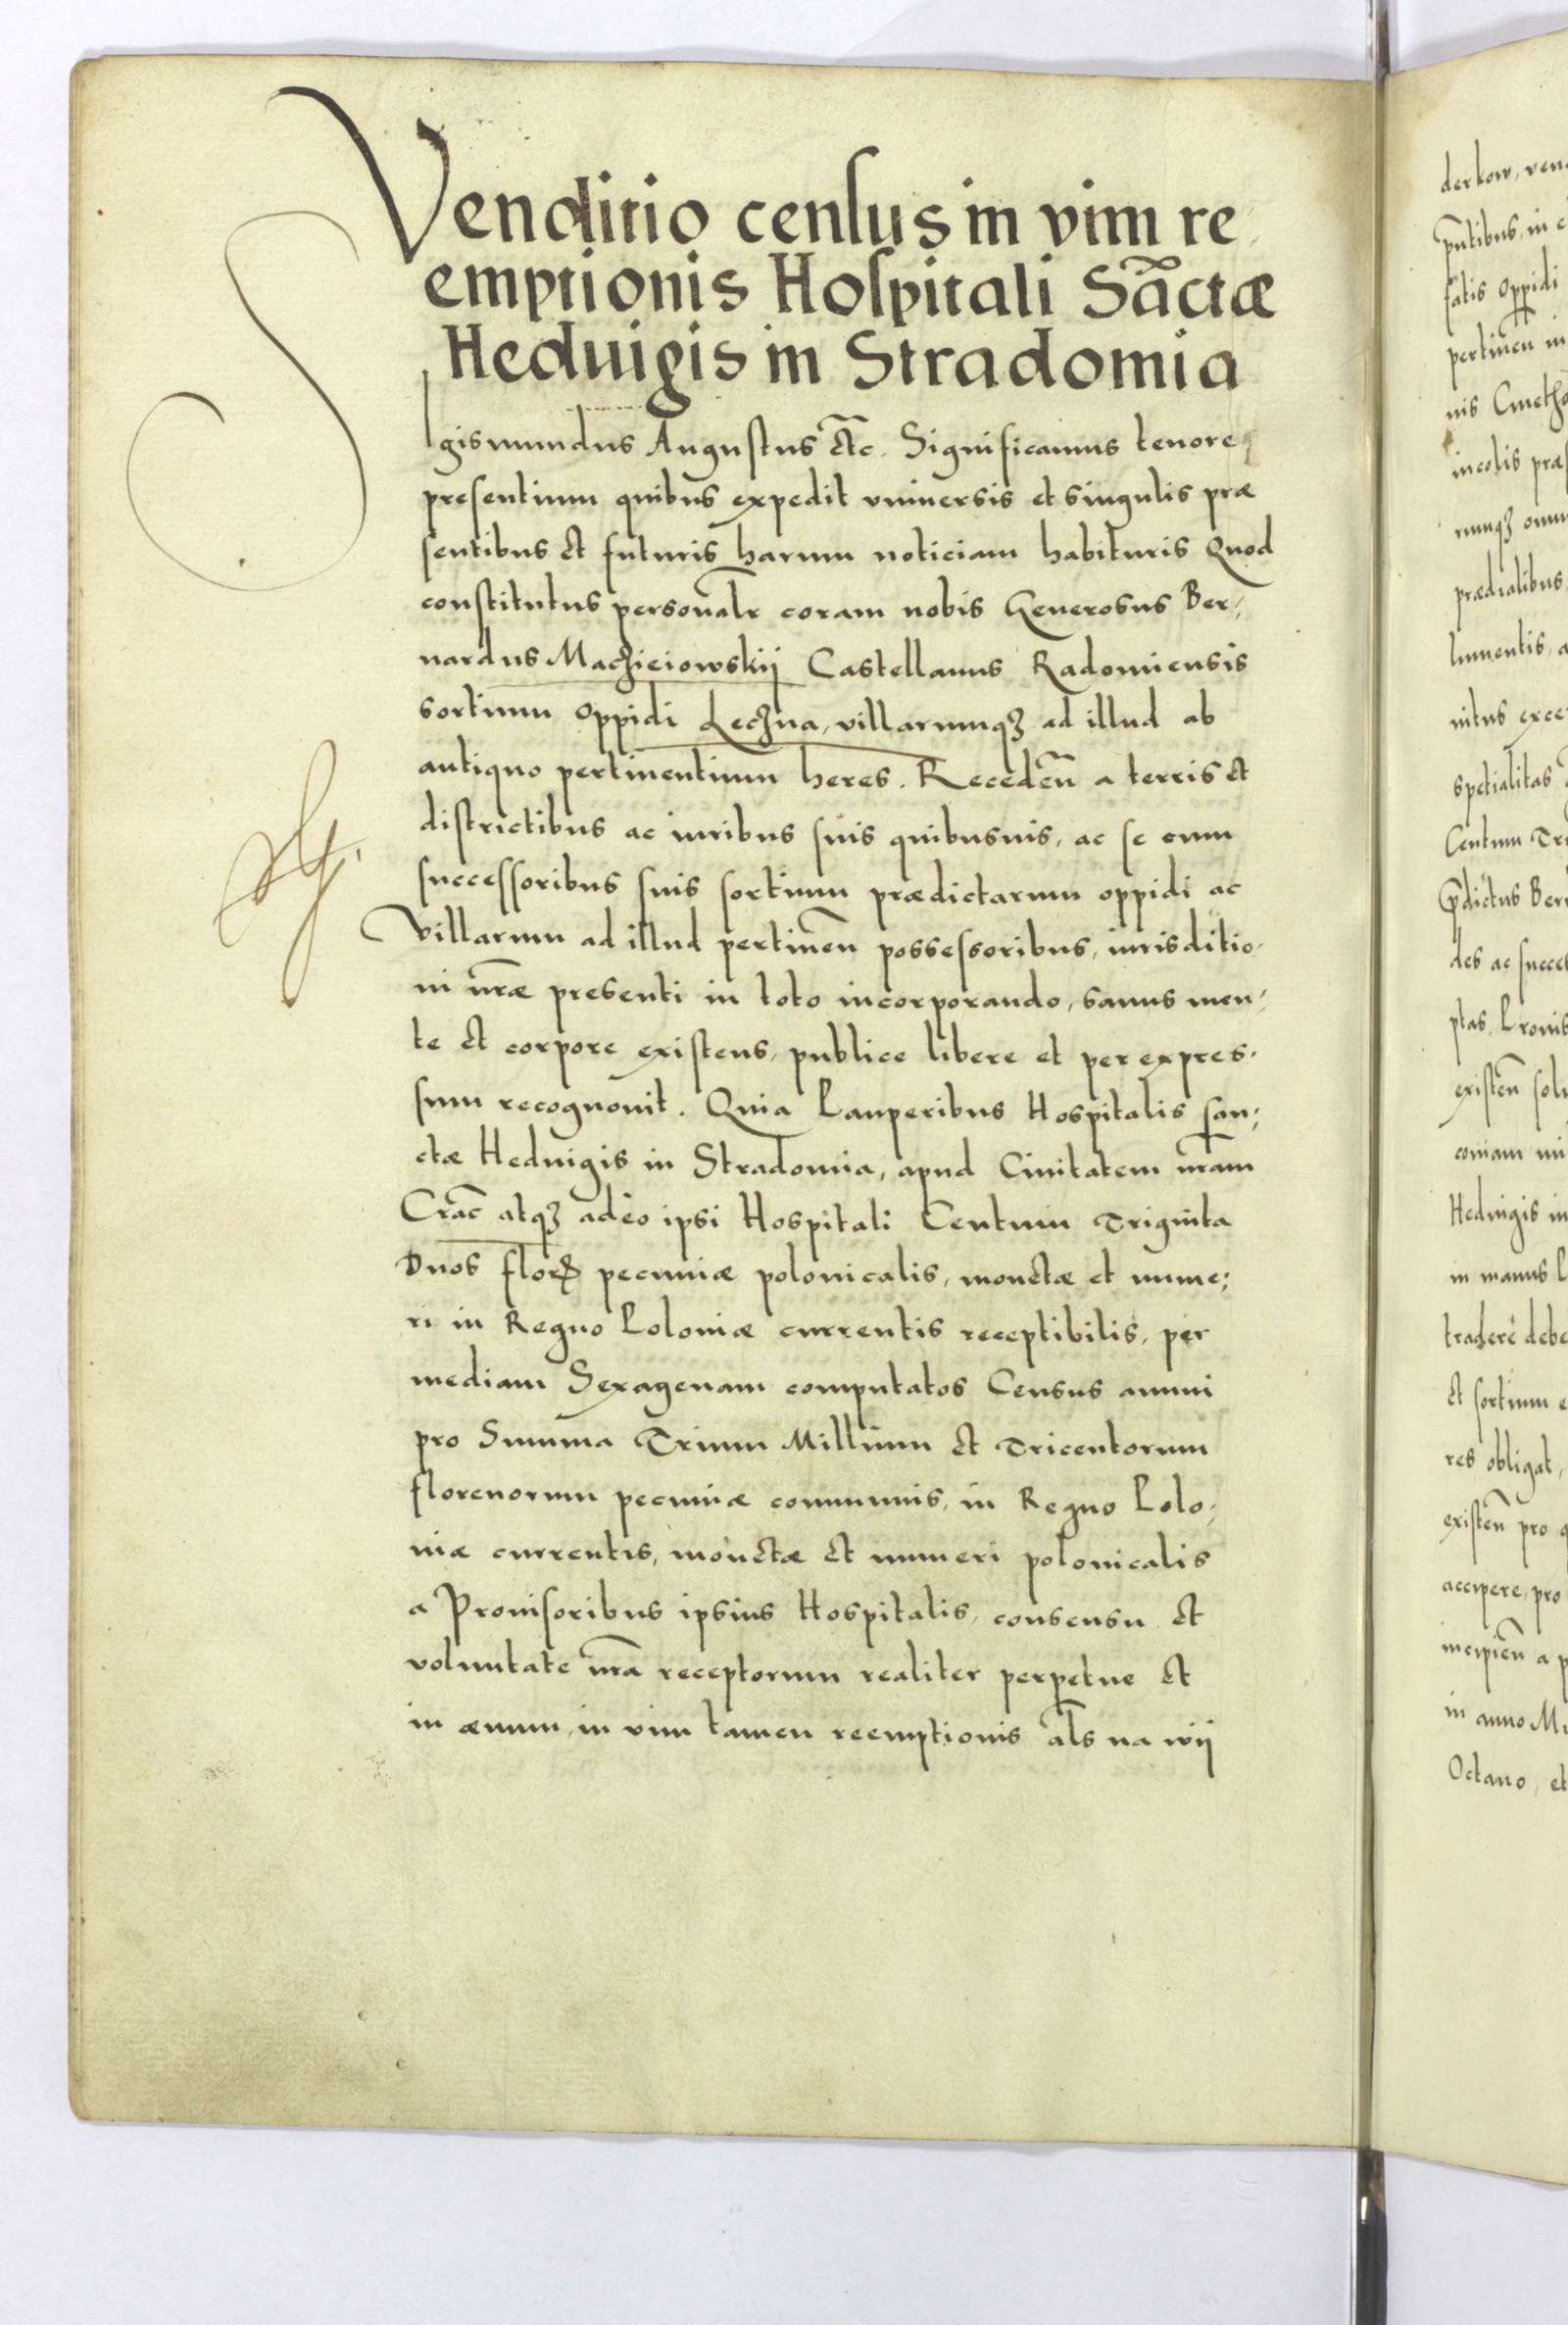 Venditio census in vim re-
emptionis Hospitali Sãctæ
Heduigis in Stradomia
Sigismundus Augustus etc̃. Significamus tenore
presentium quibus expedit vniuersis et singulis præ
sentibus et futuris harum noticiam habituris Quod
constitutus personalr̃ coram nobis Generosus Ber-
nardus Maczieiowskij Castellanus Radomiensis
sortium oppidi Leczna, villarumqꝫ ad illud ab
antiquo pertinentium heres. Recedeñ a terris et
districtibus ac iuribus suis quibusuis, ac se cum
successoribus suis sortium prædictarum oppidi ac
villarum ad illud pertineñ possessoribus, iurisditio-
ni nr̃æ presenti in toto incorporando, sanus men-
te et corpore existens, publice libere et per expres-
sum recognouit. Quia Pauperibus Hospitalis san-
ctæ Heduigis in Stradomia, apud Ciuitatem nr̃am
Crac̃ atqꝫ adeo ipsi Hospitali Centum Triginta
Duos florꝭ pecuniæ polonicalis, monetæ et nume-
ri in Regno Poloniæ currentis receptibilis, per
mediam Sexagenam computatos Census annui
pro Summa Trium Millium et Tricentorum
florenorum pecuniæ communis, in Regno Polo-
niæ currentis, monetæ et numeri polonicalis
a Prouisoribus ipsius Hospitalis, consensu et
voluntate nr̃a receptorum realiter perpetue et
in æuum, in vim tamen reemptionis al̃s na wij
derkow, ven
pñtibus, in c
fatis oppidi
pertineñ in
nis Cmetho
incolis præf
rumqꝫ omn
prædialibus
limentis, a
nitus exce
spetialitas
Centum Tri
p̃dictus Ber
des ac succes
ptas, Prouis
existeñ solu
coniam
Hedwigis in
in manus P
tradere debe
et sortium e
res obligat,
existeñ pro q
accipere, pro
incipieñ a p
in anno Mi
Octauo, et